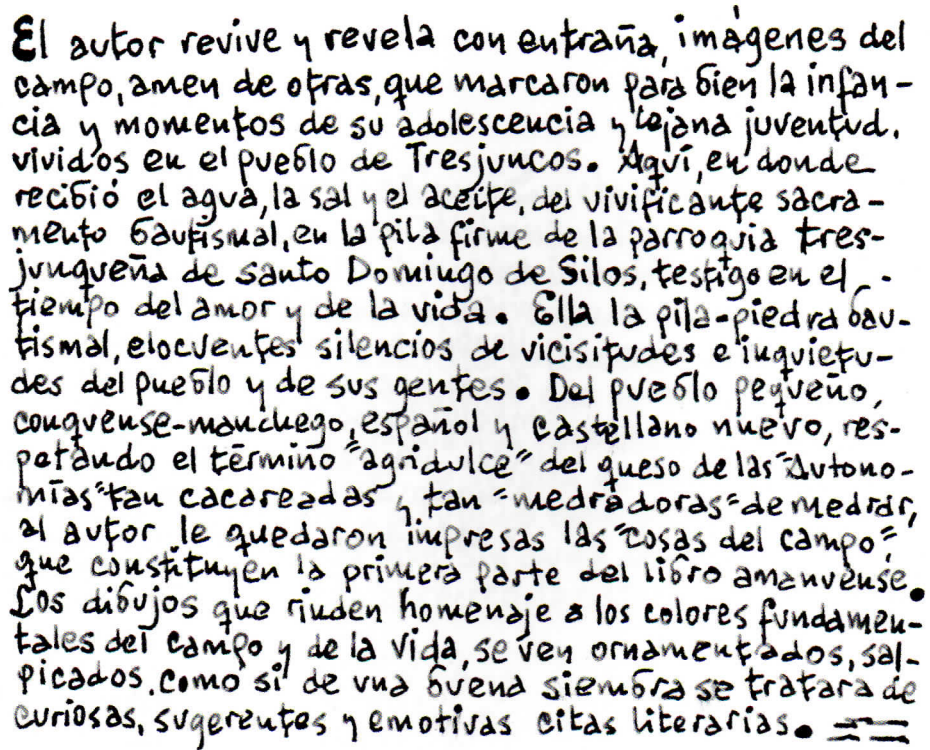 El autor revive y revela con entraña, imágenes del
campo, amen de otras, que marcaron para bien la infan-
cia y momentos de su adolescencia y lejana juventud,
vividos en el pueblo de Tresjuncos. Aquí, en donde
recibió el agua, la sal y el aceite, del vivificante sacra-
mento bautismal, en la pila firme de la parroquia tres-
junqueña de Santo Domingo de Silos, testigo en el
tiempo del amor y de la vida. Ella la pila-piedra bau-
tismal, elocuentes silencios de vicisitudes e inquietu-
des del pueblo y de sus gentes. Del pueblo pequeño,
conquense-manchego, español y castellano nuevo, res-
petando el término "agridulce" del queso de las "Autono-
mías" tan cacareadas y tan "medradoras" de medrar,
al autor le quedaron impresas las "cosas del campo",
que constituyen la primera parte del libro amanuense.
Los dibujos que rinden homenaje a los colores fundamen-
tales del campo y de la vida, se ven ornamentados, sal-
picados, como si de una buena siembra se tratara de
curiosas, sugerentes y emotivas citas literarias.